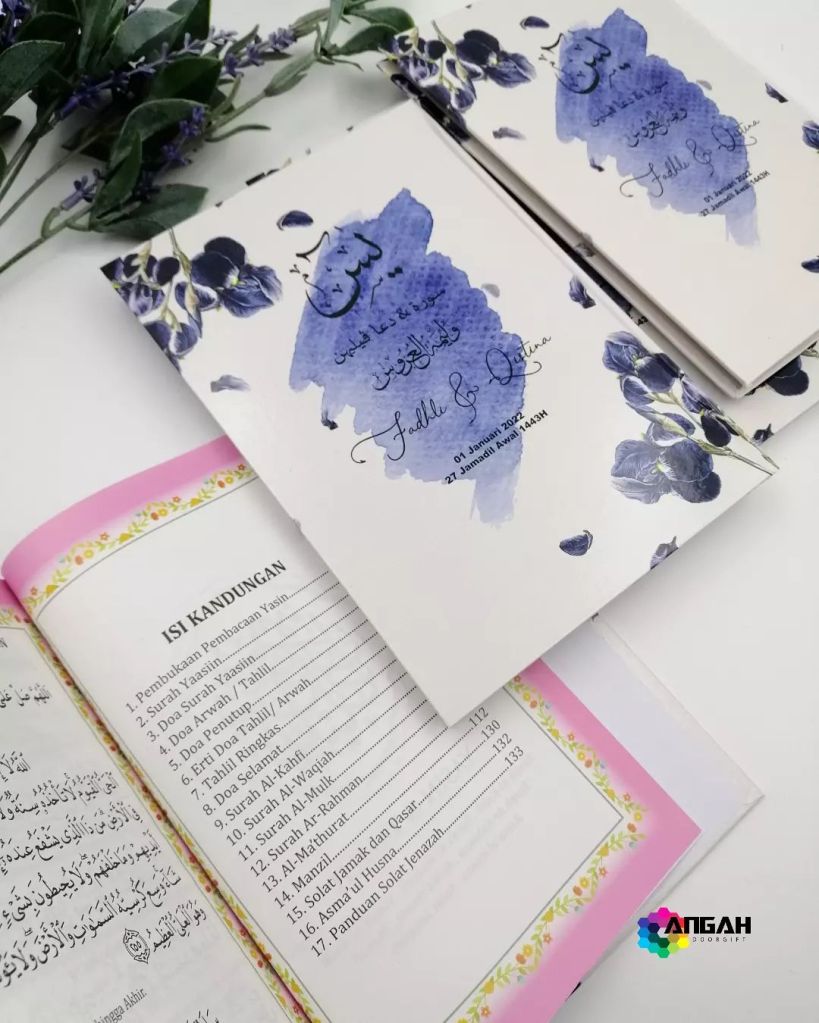 يس
سورة & دعا ڤيليهن
وليمة العروس
Fadhli & Qistina
01 Januari 2022
27 Jamadil Awal 1443H
يس
وليمة العروس
Fadhli & Qistina
01 Januari 2022
27 Jamadil Awal 1443H
ISI KANDUNGAN
1. Pembukaan Pembacaan Yasin
2. Surah Yaasiin
3. Doa Surah Yaasiin
4. Doa Arwah / Tahlil
5. Doa Penutup
6. Erti Doa Tahlil/ Arwah
7. Tahlil Ringkas
8. Doa Selamat
9. Surah Al-Kahfi
10. Surah Al-Waqiah
11. Surah Al-Mulk
12. Surah Ar-Rahman
13. Al-Ma'thurat
14. Manzil 112
15. Solat Jamak dan Qasar 130
16. Asma'ul Husna 132
17. Panduan Solat Jenazah 133
وَهُوَ الْعَلِيُّ الْعَظِيْمُ
hingga Akhir.
ANGAH
DOORGIFT